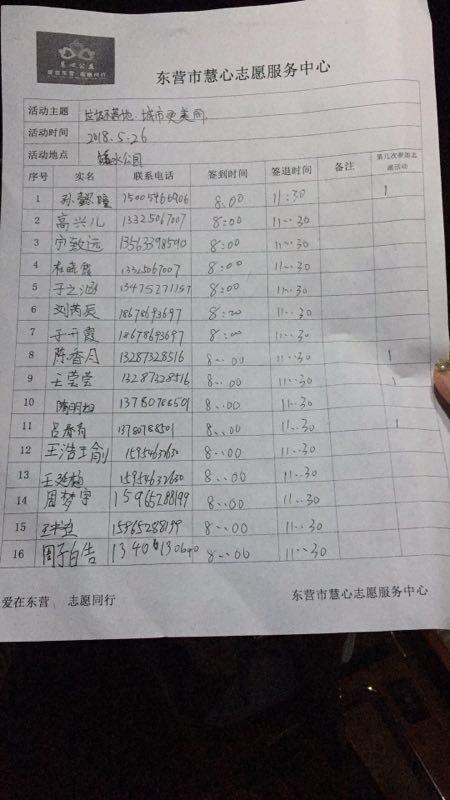 慧心公益
爱在东营 志愿同行
东营市慧心志愿服务中心
活动主题 垃圾不落地,城市更美丽.
活动时间 2018.5.26
活动地点 公园
序号 实名 联系电话 签到时间 签退时间 备注 第几次参加志愿活动
1 孙懿曈 15005466906 8:00 11:30 1
2 高兴儿 13325067007 8:00 11:30
3 宁致远 13563398590 8:00 11:30
4 杜晓霞 13325067007 8:00 11:30
5 于之涵 13475271157 8:00 11:30
6 刘芮辰 18678693697 8:00 11:30
7 于开霞 18678693697 8:00 11:30
8 陈香月 13287328516 8:00 11:30 1
9 王莹莹 13287328516 8:00 11:30 1
10 隋明 13780788501 8:00 11:30
11 吕春 13780788501 8:00 11:30 1
12 王浩王俞 15954632630 8:00 11:30
13 王延梅 15954632630 8:00 11:30
14 周梦宇 15965288199 8:00 11:30
15 15965288199 8:00 11:30
16 周子皓 13406130690 8:00 11:30
爱在东营 志愿同行 东营市慧心志愿服务中心